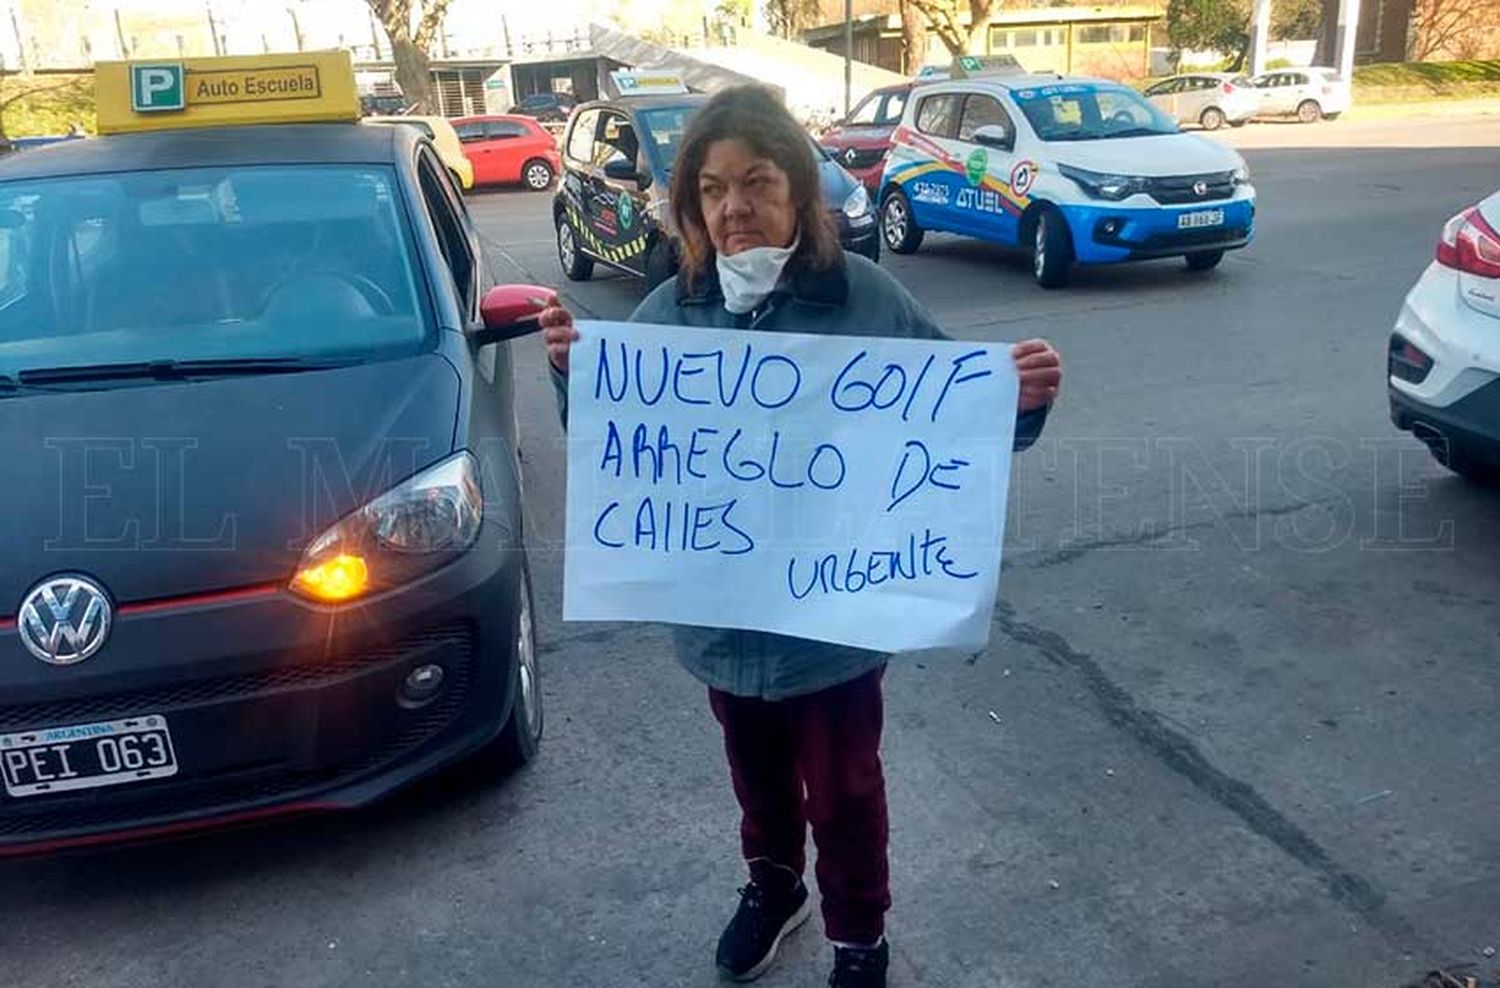 P Auto Escuela
ATUEL
NUEVO GOlF
ARREGLO DE
CAllES
URGENtE
EL MARPLATENSE
ARGENTINA
PEI 063